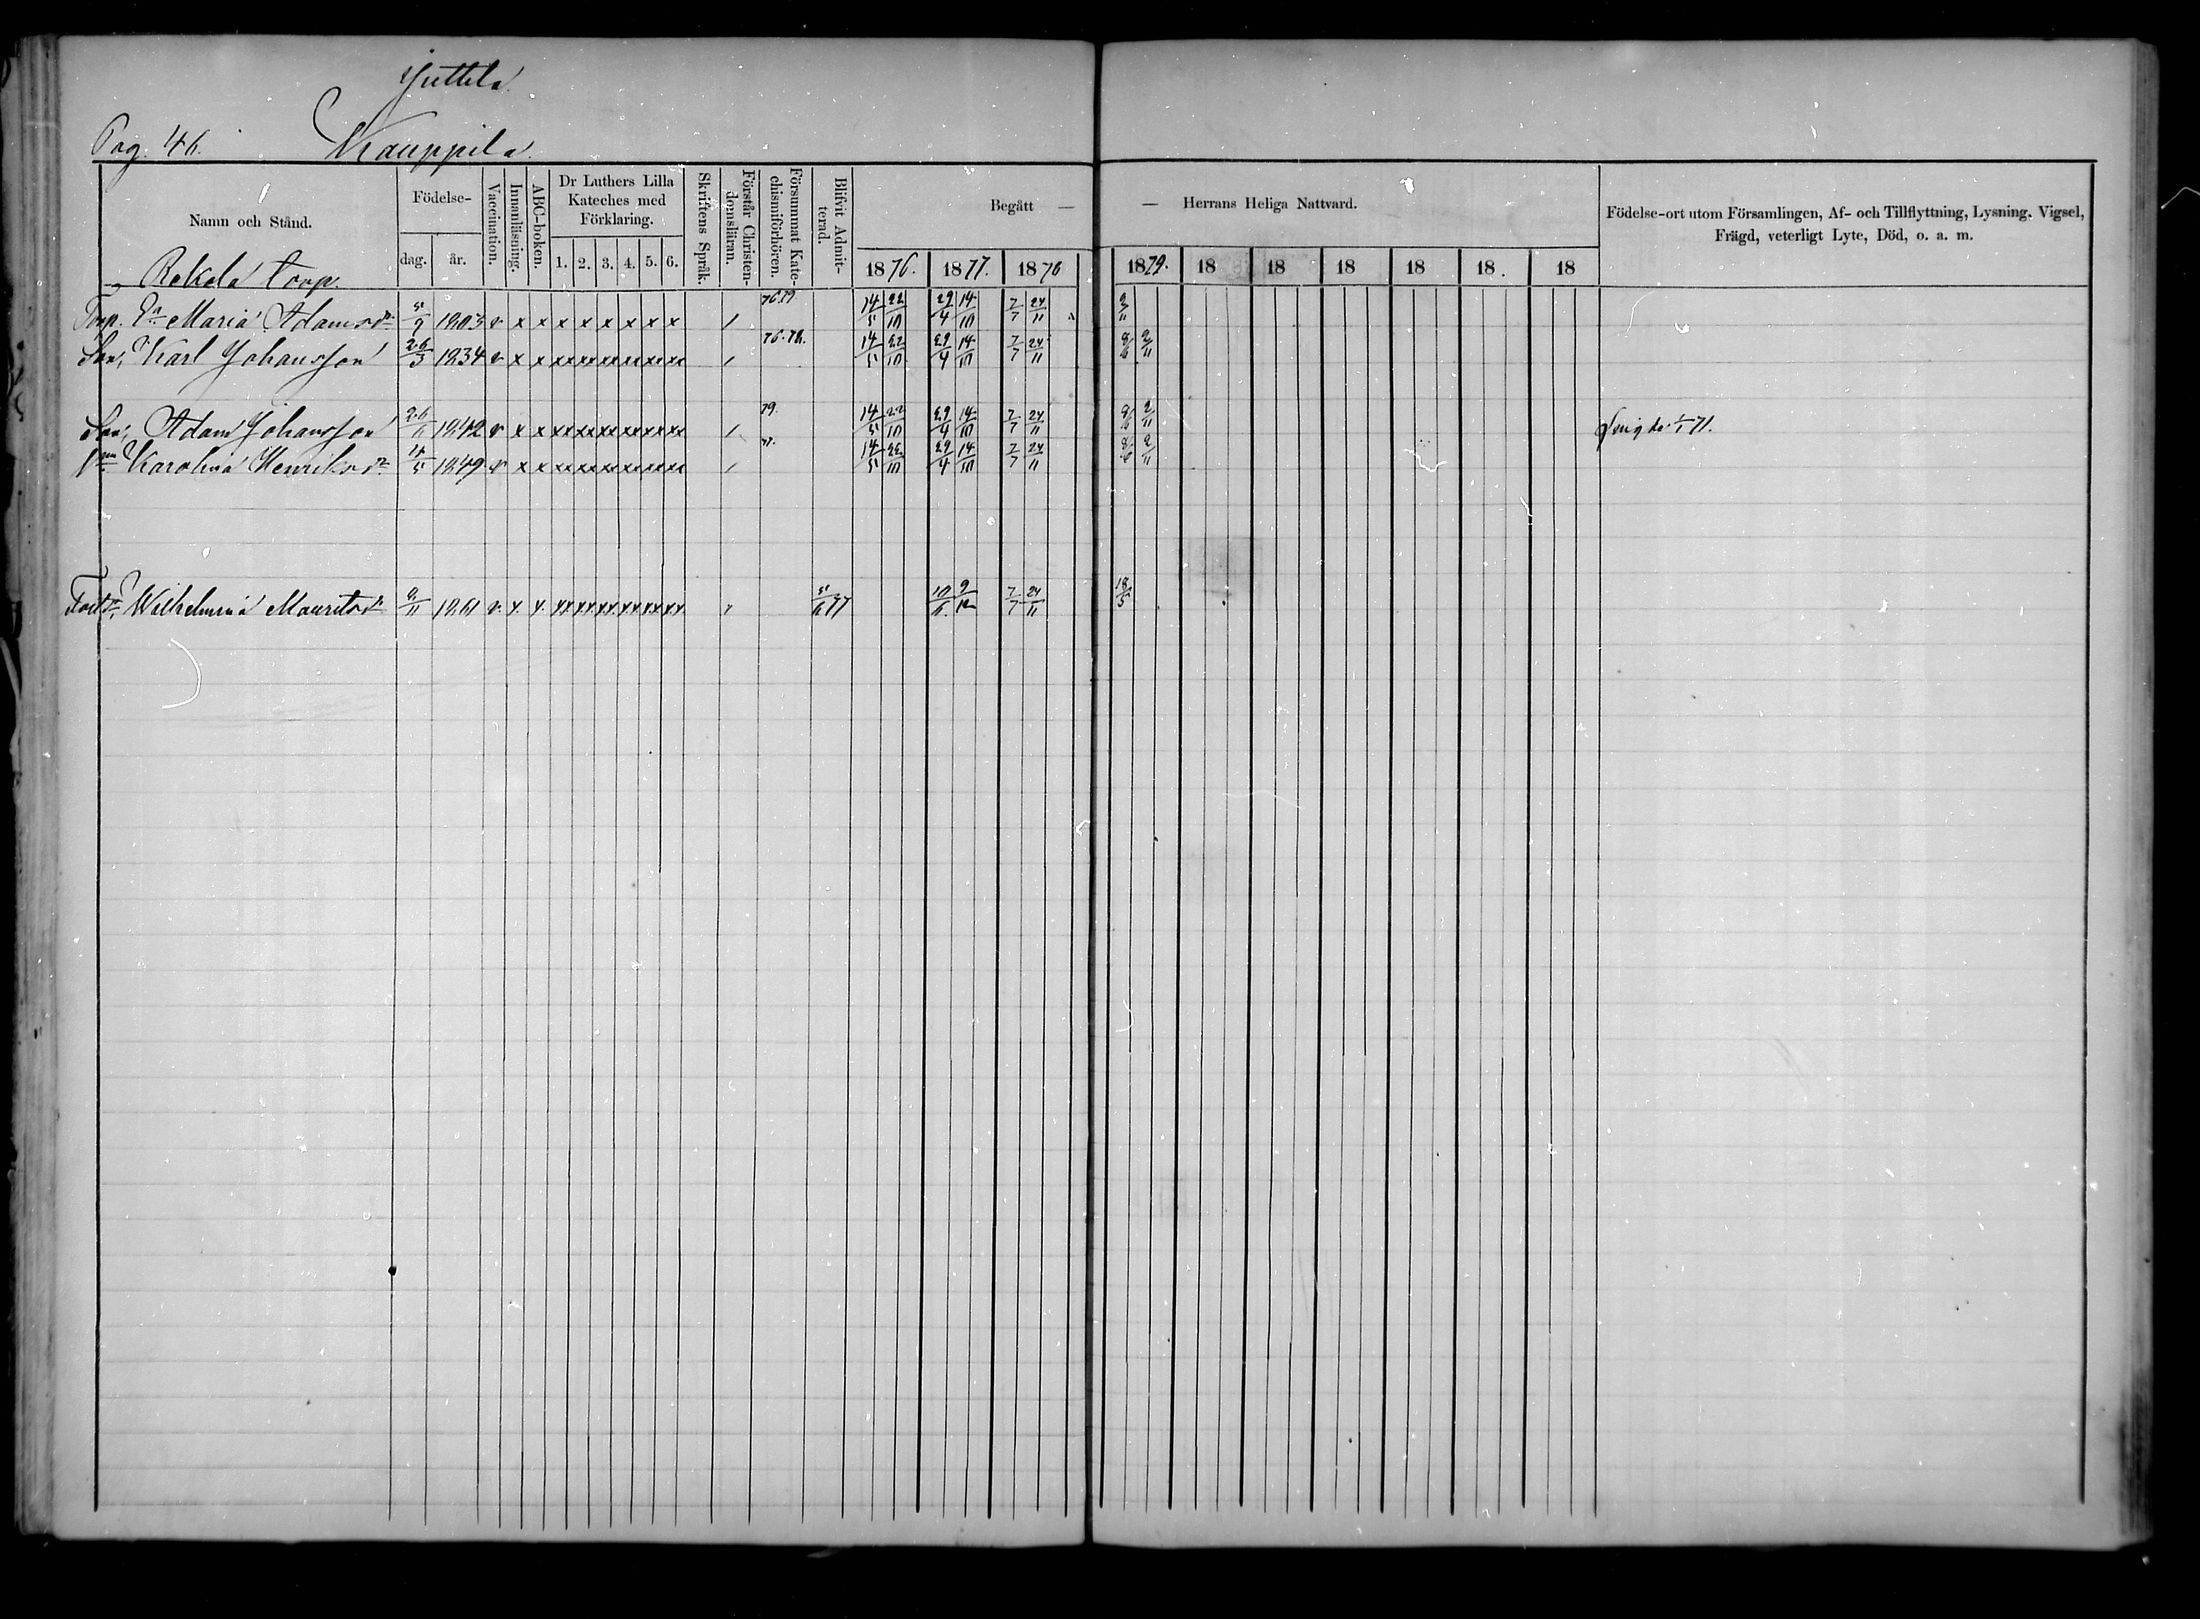 Juttila
Pag. 46. Kauppila.
Namn och Stånd.
Födelse-
dag.
år.
Vaccination.
Innanläsning.
ABC-boken.
Dr Luthers Lilla
Kateches med
Förklaring.
1. 2. 3. 4. 5. 6.
Skriftens Språk.
Förstår Christen-
domsläran.
Försummat Kate-
chismiförhören.
Blifvit Admit-
terad.
Begått — — Herrans Heliga Nattvard.
1876. 1877. 1878 1879. 18 18 18 18 18. 18
Födelse-ort utom Församlingen, Af- och Tillflyttning, Lysning. Vigsel,
Frägd, veterligt Lyte, Död, o. a. m.
torp.
Torp. Maria Adamsdr 5/9 1803 v x x x x x x x x / 76.79 14/5 22/10 29/4 14/10 7/7 24/11 2/11
Son, Karl Johansson 26/3 1834 v x x xx xx xx xx xx xx / 76.78. 14/5 22/10 29/4 14/10 7/7 24/11 8/6 2/11
Son, Adam Johansson 1842 v x x xx xx xx xx xx xx / 79. 14/5 22/10 29/4 14/10 7/7 24/11 8/6 2/11
Karolina Henriksdr 1849 v x x xx xx xx xx xx xx / 14/5 22/10 29/4 14/10 7/7 24/11 8/6 2/11
Wilhelmina Mauritsdr 1861 v. x x xx xx xx xx xx xx 77 7/7 24/11 18/5